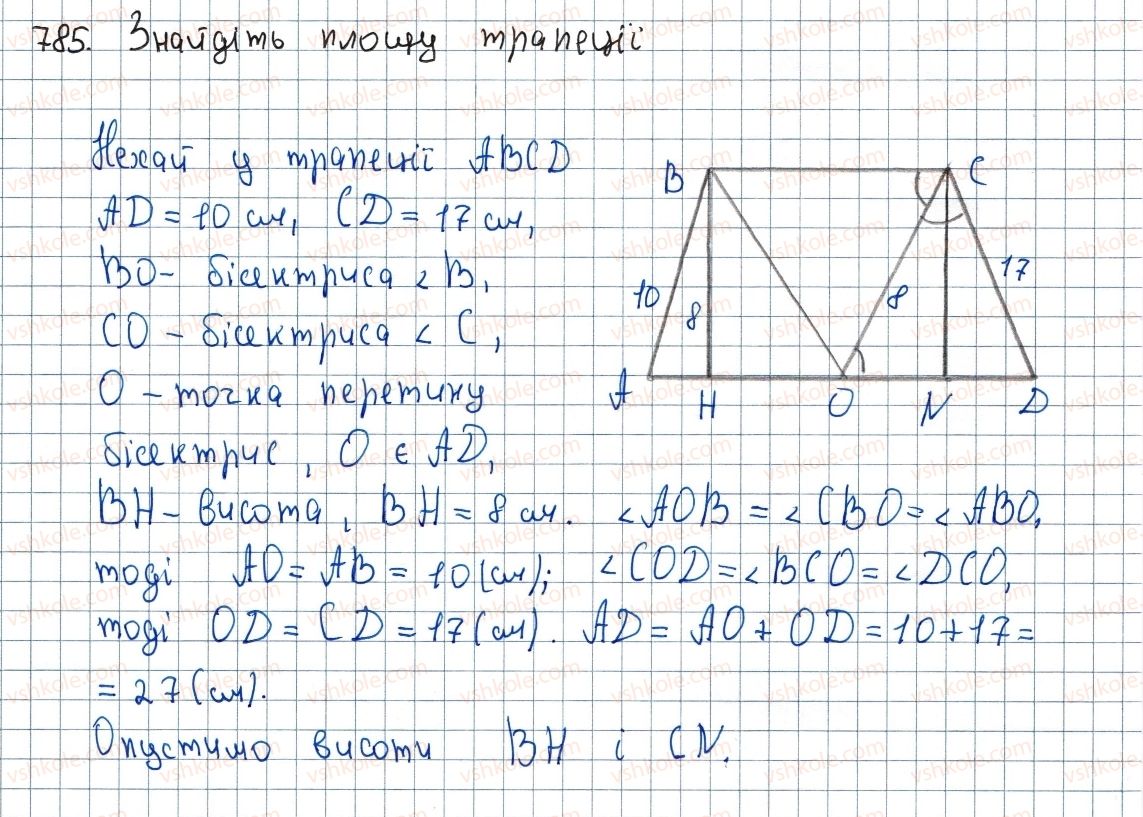 785. Знайдіть площу трапеції
Нехай у трапеції ABCD
AD = 10 см, CD = 17 см,
BO - бісектриса ∠ B,
CO - бісектриса ∠ C,
O - точка перетину
бісектрис, O є AD,
BH - висота, BH = 8 см. ∠AOB = ∠CBO = ∠ABO,
тоді AO = AB = 10 (см); ∠COD = ∠BCO = ∠DCO,
тоді OD = CD = 17 (см). AD = AO + OD = 10 + 17 =
= 27 (см).
Опустимо висоти BH і CN.
B C
10 8 8 17
A H O N D
vshkole.com